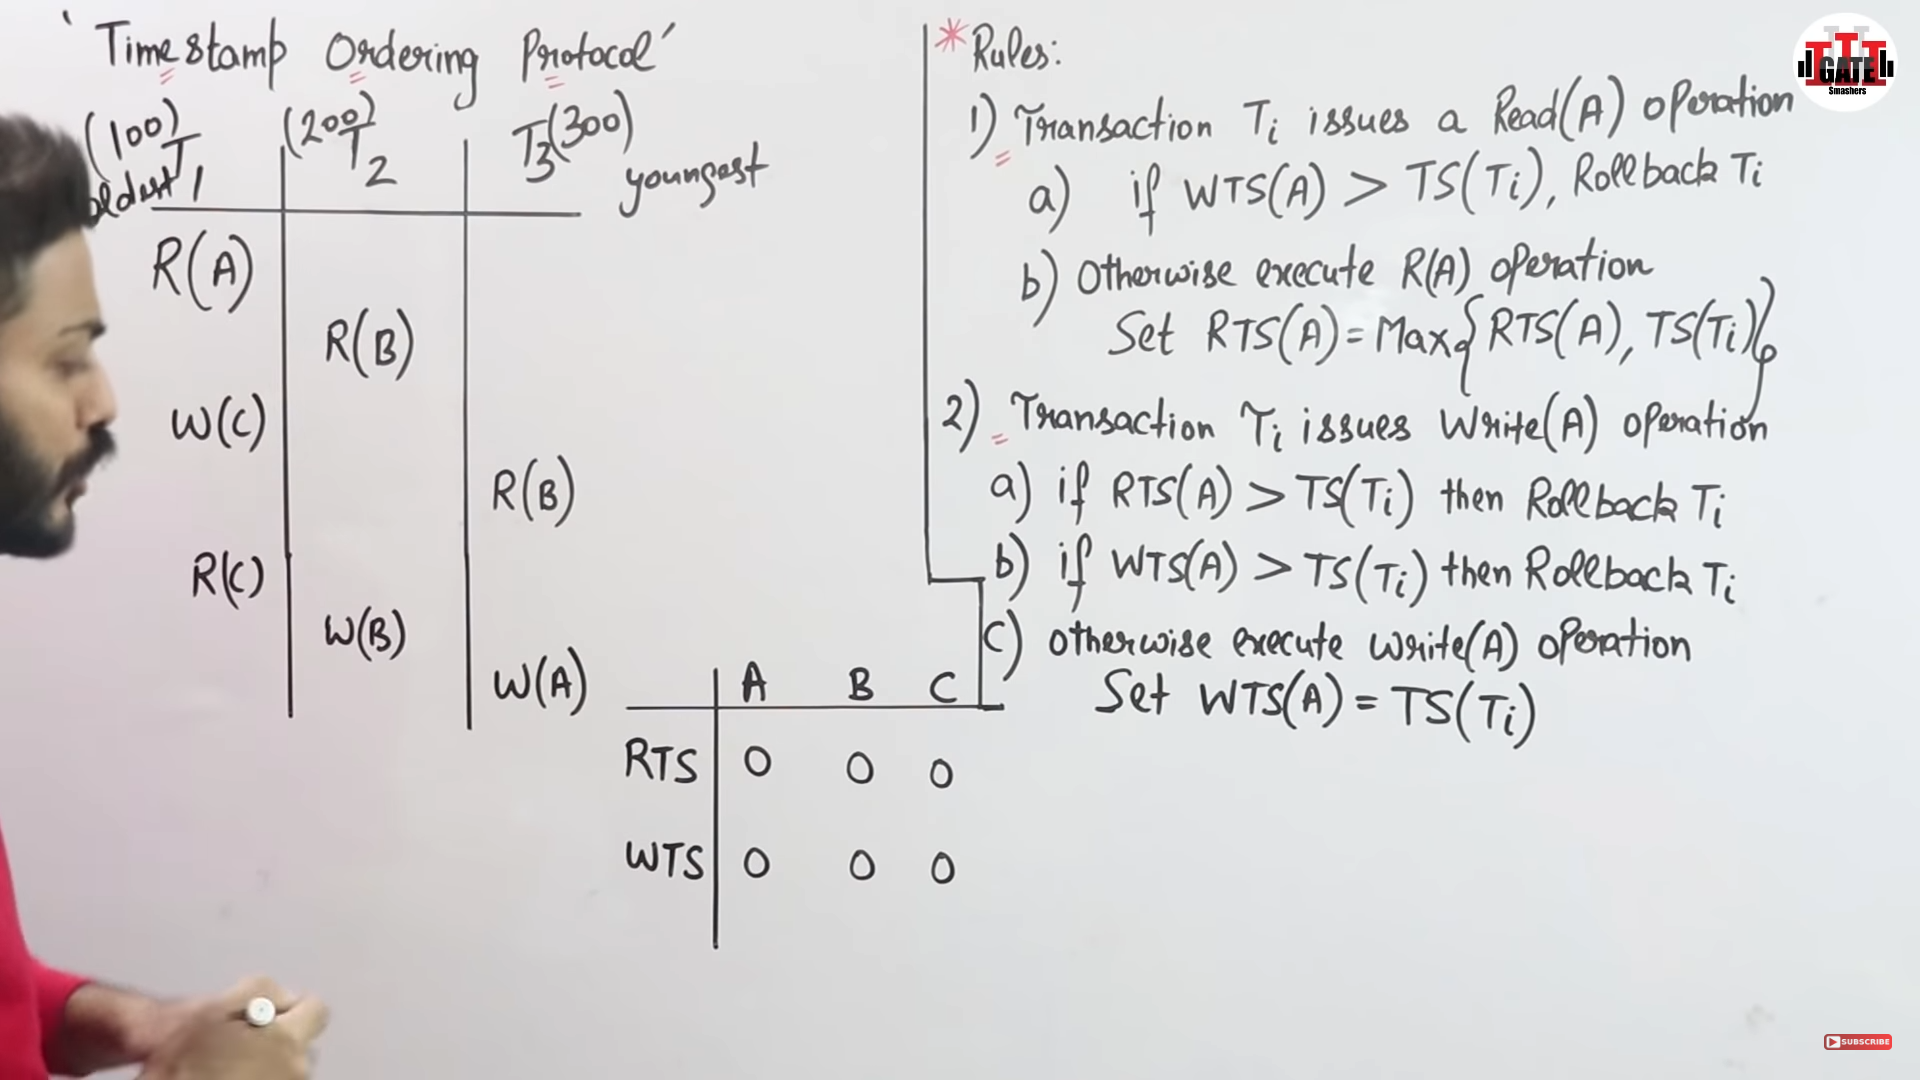 'Timestamp Ordering Protocol'
(100) (200) (300)
T1 T2 T3
oldest youngest
R(A)
R(B)
W(C)
R(B)
R(C)
W(B)
W(A)
A B C
RTS 0 0 0
WTS 0 0 0
* Rules:
1) Transaction Ti issues a Read(A) operation
a) if WTS(A) > TS(Ti), Rollback Ti
b) Otherwise execute R(A) operation
Set RTS(A) = Max{RTS(A), TS(Ti)}
2) Transaction Ti issues Write(A) operation
a) if RTS(A) > TS(Ti) then Rollback Ti
b) if WTS(A) > TS(Ti) then Rollback Ti
c) otherwise execute write(A) operation
Set WTS(A) = TS(Ti)
GATE
Smashers
SUBSCRIBE